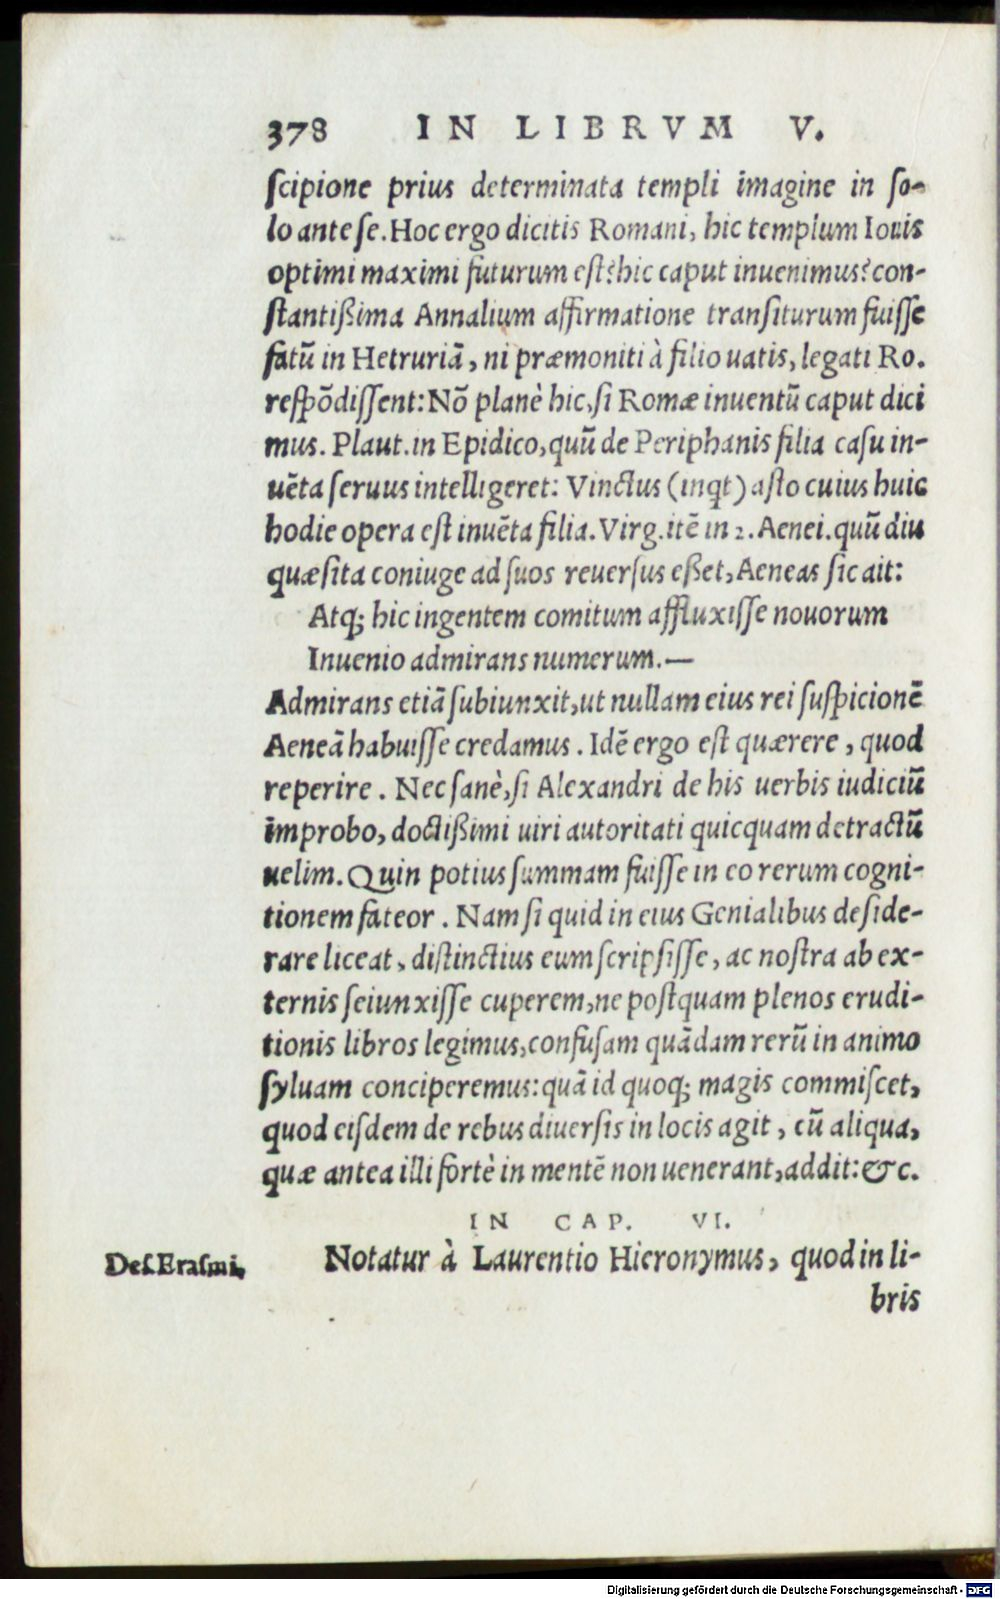 378 IN LIBRVM V.
ſcipione prius determinata templi imagine in ſo-
lo ante ſe. Hoc ergo dicitis Romani, hic templum Iouis
optimi maximi futurum eſt? hic caput inuenimus? con-
ſtantißima Annalium affirmatione tranſiturum fuiſſe
fatū in Hetruriā, ni præmoniti à filio uatis, legati Ro.
reſpōdiſſent: Nō planè hic, ſi Romæ inuentū caput dici
mus. Plaut. in Epidico, quū de Periphanis filia caſu in-
uēta ſeruus intelligeret: Vinctus (inqt) aſto cuius huic
hodie opera eſt inuēta filia. Virg. itē in 2. Aenei. quū diu
quæſita coniuge ad ſuos reuerſus eßet, Aeneas ſic ait:
Atq; hic ingentem comitum affluxiſſe nouorum
Inuenio admirans numerum.—
Admirans etiā ſubiunxit, ut nullam eius rei ſuſpicionē
Aeneā habuiſſe credamus. Idē ergo eſt quærere, quod
reperire. Nec ſanè, ſi Alexandri de his uerbis iudiciū
improbo, doctißimi uiri autoritati quicquam detractū
uelim. Quin potius ſummam fuiſſe in eo rerum cogni-
tionem fateor. Nam ſi quid in eius Genialibus deſide-
rare liceat, diſtinctius eum ſcripſiſſe, ac noſtra ab ex-
ternis ſeiunxiſſe cuperem, ne poſtquam plenos erudi-
tionis libros legimus, confuſam quādam rerū in animo
ſyluam conciperemus: quā id quoq; magis commiſcet,
quod eiſdem de rebus diuerſis in locis agit, cū aliqua,
quæ antea illi fortè in mentē non uenerant, addit: &c.
IN CAP. VI.
Def. Eraſmi. Notatur à Laurentio Hieronymus, quod in li-
bris
Digitalisierung gefördert durch die Deutsche Forschungsgemeinschaft - DFG